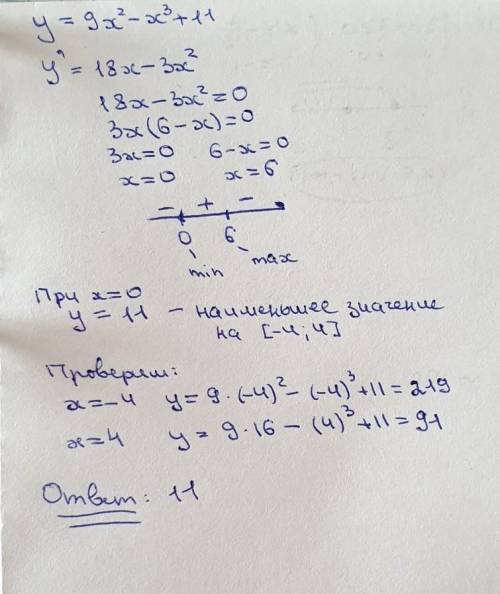 y = 9x² - x³ + 11
y' = 18x - 3x²
18x - 3x² = 0
3x(6 - x) = 0
3x = 0 6 - x = 0
x = 0 x = 6
- + -
0 6
min max
При x = 0
y = 11 - наименьшее значение
на [-4; 4]
Проверяем:
x = -4 y = 9 · (-4)² - (-4)³ + 11 = 219
x = 4 y = 9 · 16 - (4)³ + 11 = 91
Ответ: 11